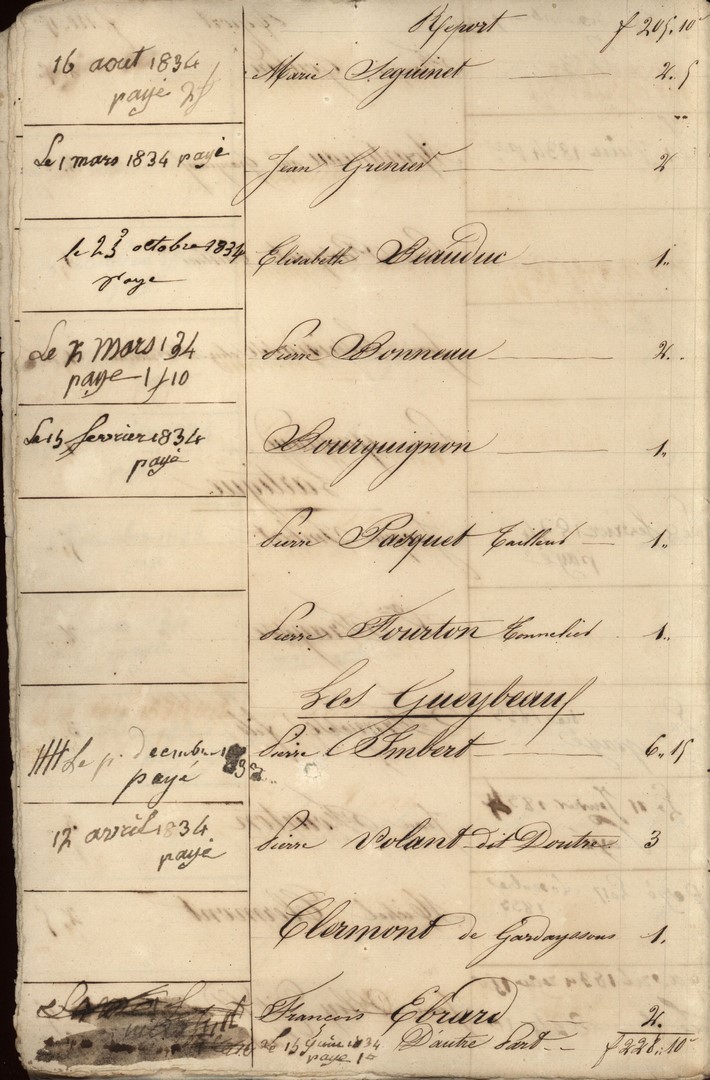 Report f 205,,10
16 aout 1834
payé 2f
Marie Seguinet 2,, 5
Le 1 mars 1834 payé
Jean Grenier 2
le 23 octobre 1834
paye
Elisabeth Beauduc 1,,
Le mars 34
paye 1f10
Pierre Bonneau 2,,
Le 15 fevrier 1834
payé
Bourguignon 1,,
Pierre Pasquet Tailleur 1,,
Pierre Fourton Tonnelier 1,,
Les Gueybeau
Le p. decembre
payé
Pierre Imbert 6,, 15
12 avril 1834
payé
Pierre Volant dit Doutre 3
Clermont de Gardayssons 1,
François Ebrard 2,
le 15 juin 1834
paye 1
D'autre Part f 228,,10